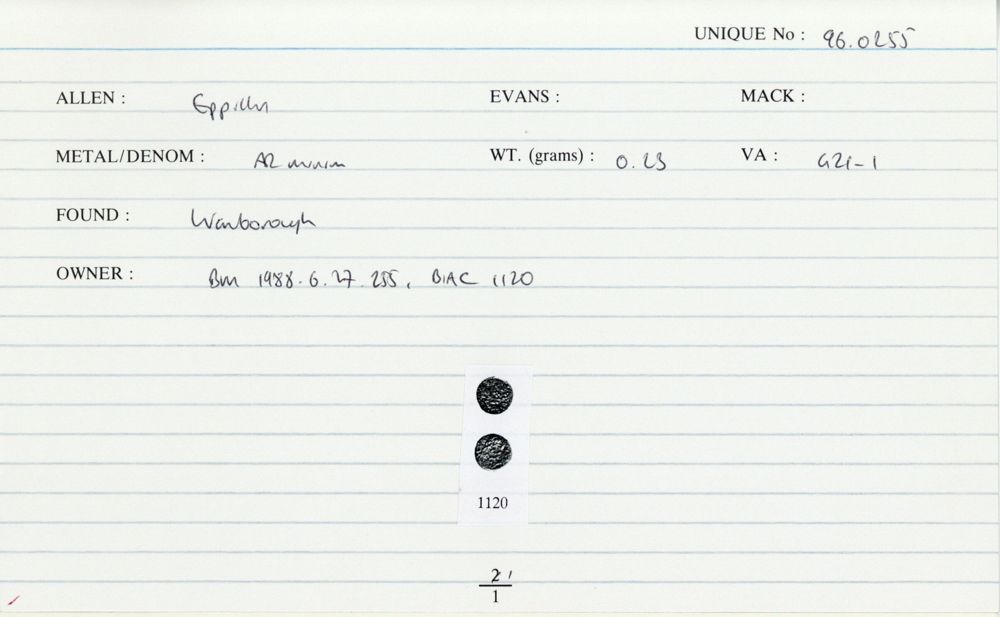 UNIQUE No : 96.0255
ALLEN : Eppillus EVANS : MACK :
METAL/DENOM : AR minim WT. (grams) : 0.23 VA : 421-1
FOUND : Wanborough
OWNER : BM 1988.6.27.255, BMC 1120
1120
2
1